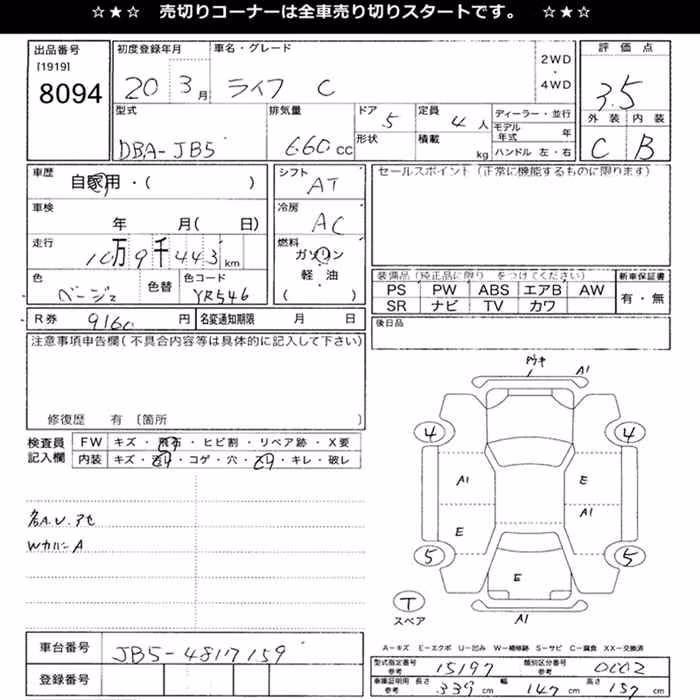 ☆★☆ 売切りコーナーは全車売り切りスタートです。 ☆★☆
出品番号 初度登録年月 車名・グレード 2WD ・ 4WD 評価点
[1919]
8094 20 3月 ライフ C 3.5
型式 排気量 ドア 5 定員 4人 ディーラー・並行 外装 内装
DBA-JB5 660cc 形状 積載 kg モデル年式 年 C B
ハンドル 左・右
車歴 自家用・( ) シフト AT セールスポイント (正常に機能するものに限ります)
車検 年 月( 日) 冷房 AC
走行 10万9千443km 燃料 ガソリン
軽・油
( )
色 ベージュ 色替 色コード YR546
装備品(純正品に限り をつけてください) 新車保証書
PS PW ABS エアB AW 有・無
SR ナビ TV カワ
R券 9160円 名変通知期限 月 日 後日品
注意事項申告欄(不具合内容等は具体的に記入して下さい)
修復歴 有 〔箇所 〕
検査員記入欄 FW キズ・飛石・ヒビ割・リペア跡・X要
内装 キズ・ ・コゲ・穴・ ・キレ・破レ
A1
4 4
A1 E
A1
E
5 5
E
A1
T
スペア
WカバーA
A=キズ E=エクボ U=凹み W=補修跡 S=サビ C=腐食 XX=交換済
車台番号 JB5-4817159
登録番号
型式指定番号 参考 15197 類別区分番号 参考 0002
車庫証明用 参考 長さ 339cm 幅 147cm 高さ 157cm